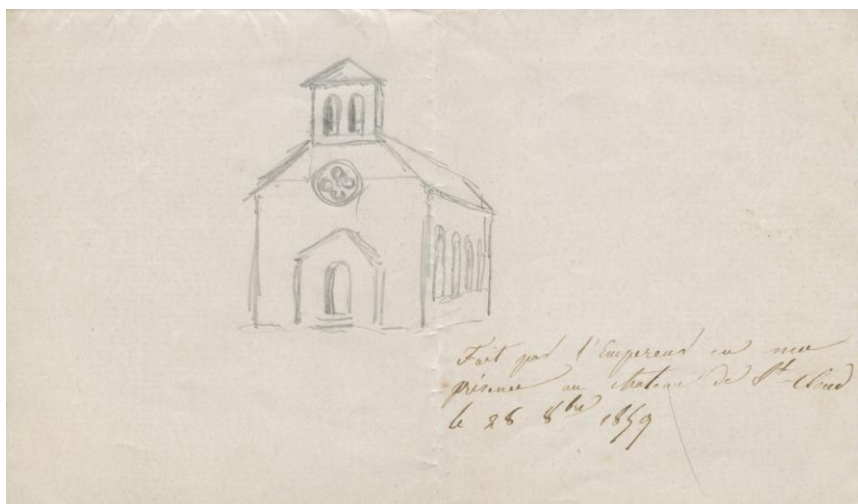 Fait par l'Empereur en ma
présence au chateau de St-Cloud
le 28 8bre 1859